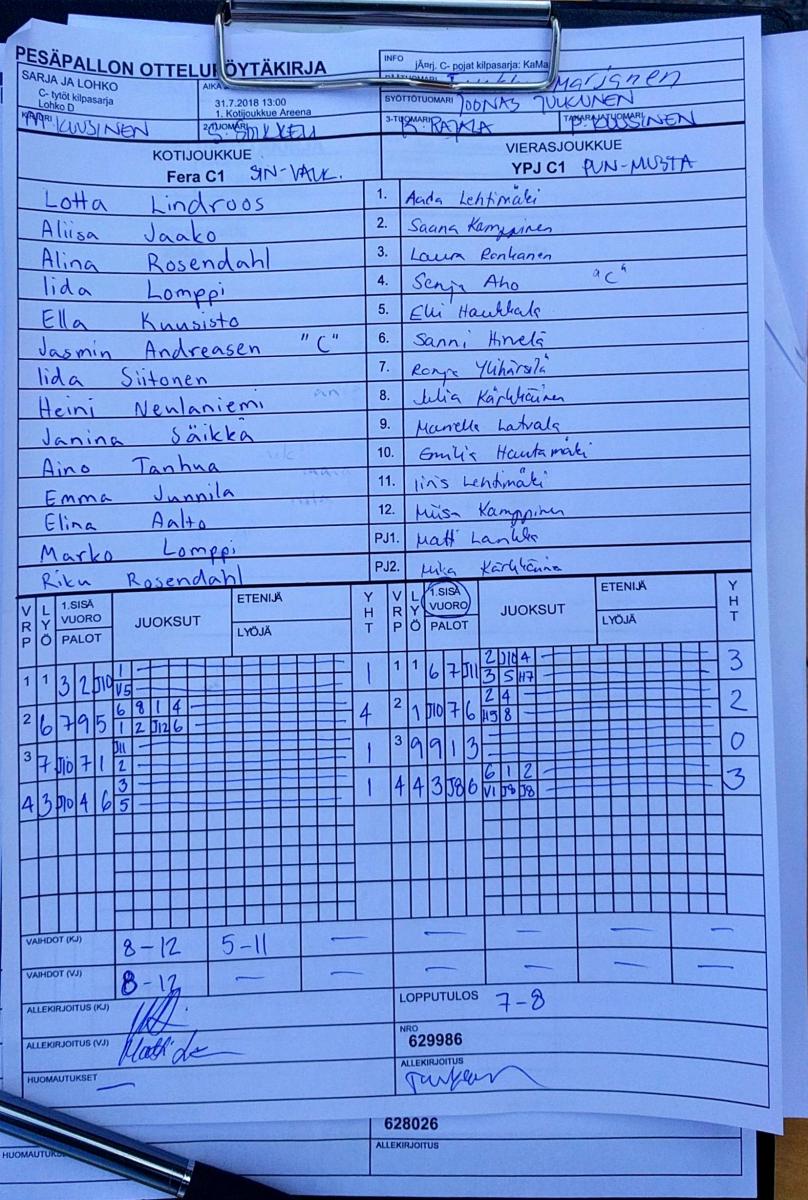 PESÄPALLON OTTELUPÖYTÄKIRJA
SARJA JA LOHKO
C- tytöt kilpasarja
Lohko D
31.7.2018 13:00
1. Kotijoukkue Areena
INFO
jÄ¤rj. C- pojat kilpasarja: KaMa
Marjanen
SYÖTTÖTUOMARI JOONAS JUKUNEN
M. KUUSINEN
2-TUOMARI
3-TUOMARI R. RAJALA
TAKARAJATUOMARI P. KUUSINEN
KOTIJOUKKUE
Fera C1 SIN-VALK.
VIERASJOUKKUE
YPJ C1 PUN-MUSTA
Lotta Lindroos 1. Aada Lehtimäki
Aliisa Jaako 2. Saana Kamppinen
Alina Rosendahl 3. Laura Ronkanen
Iida Lomppi 4. Senja Aho "C"
Ella Kuusisto 5. Elli Haukkala
Jasmin Andreasen "C" 6. Sanni Hirvelä
Iida Siitonen 7. Ronja Ylihärsilä
Heini Neulaniemi 8. Julia Kärkkäinen
Janina Säikkä 9. Marella Latvala
Aino Tanhua 10. Emilia Hautamäki
Emma Junnila 11. Iiris Lehtimäki
Elina Aalto 12. Miisa Kamppinen
Marko Lomppi PJ1. Matti
Riku Rosendahl PJ2. Mika Kärkkäinen
VRP LYÖ 1.SISÄ VUORO PALOT JUOKSUT ETENIJÄ LYÖJÄ YHT VRP LYÖ 1.SISÄ VUORO PALOT JUOKSUT ETENIJÄ LYÖJÄ YHT
1 1 3 2 J10 1 1 1 1 6 7 J11 2 J10 4 3
V5 3 5 H7
2 6 7 9 5 6 8 1 4 4 2 1 J10 7 6 2 4 2
1 2 J12 6 H5 8
3 7 J10 7 1 J11 1 3 9 9 1 3 0
2
4 3 J10 4 6 3 1 4 4 3 J8 6 6 1 2 3
5 V1 J8 J8
VAIHDOT (KJ) 8-12 5-11 — — — — —
VAIHDOT (VJ) 8-12 — — — — — —
ALLEKIRJOITUS (KJ)
LOPPUTULOS 7-8
ALLEKIRJOITUS (VJ)
NRO
629986
HUOMAUTUKSET —
ALLEKIRJOITUS
628026
ALLEKIRJOITUS